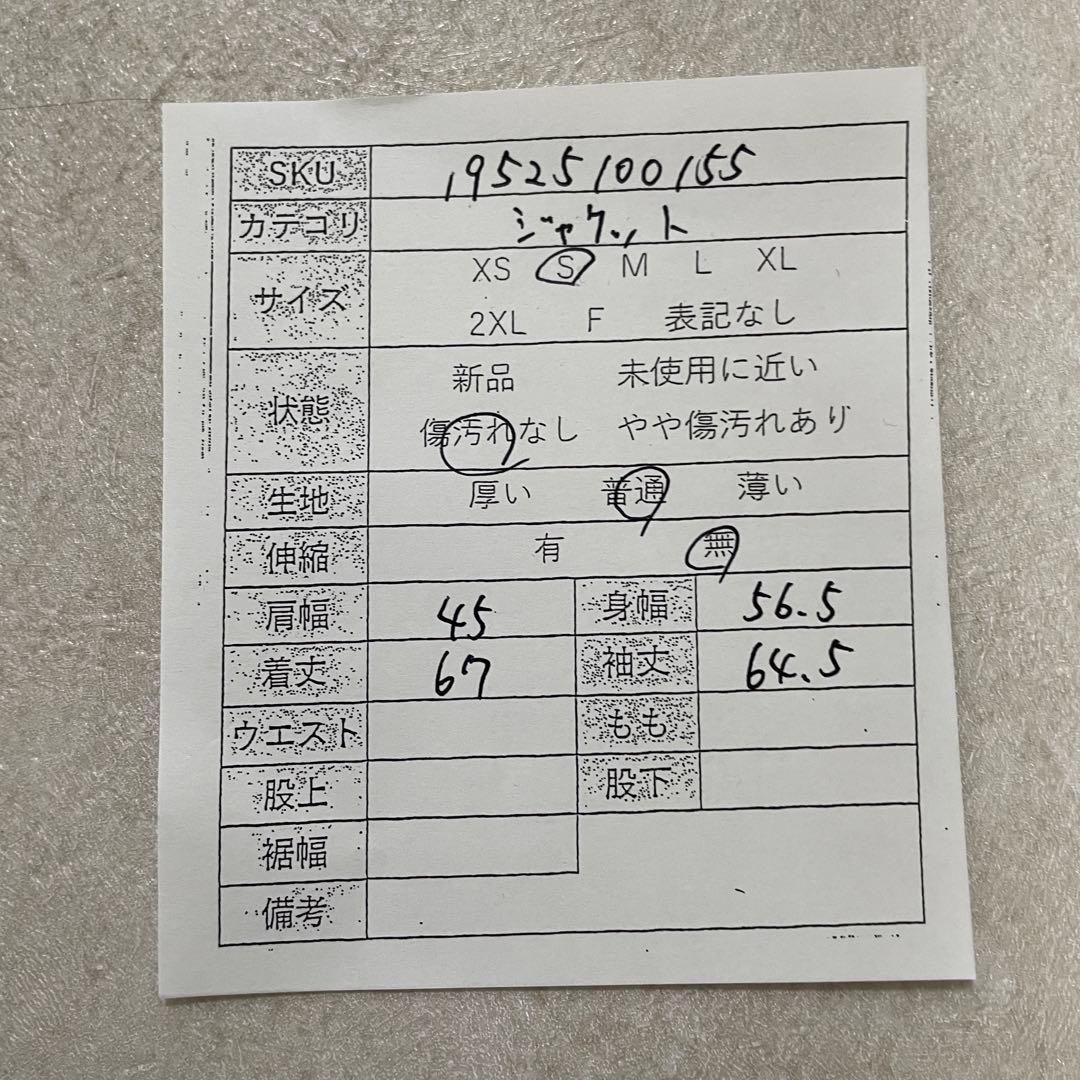 SKU 19525100155
カテゴリ ジャケット
サイズ XS S M L XL
2XL F 表記なし
状態 新品 未使用に近い
傷汚れなし やや傷汚れあり
生地 厚い 普通 薄い
伸縮 有 無
肩幅 45 身幅 56.5
着丈 67 袖丈 64.5
ウエスト もも
股上 股下
裾幅
備考